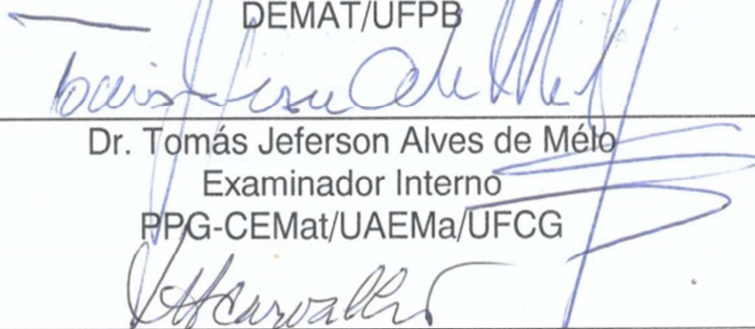 DEMAT/UFPB
Dr. Tomás Jeferson Alves de Mélo
Examinador Interno
PPG-CEMat/UAEMa/UFCG